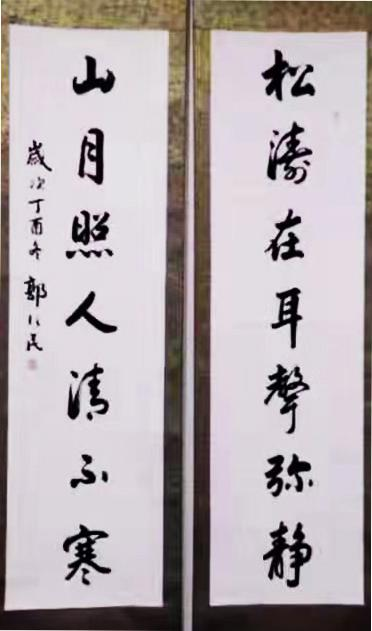 松濤在耳聲弥靜
山月照人清不寒
歲次丁酉冬 郭仁民